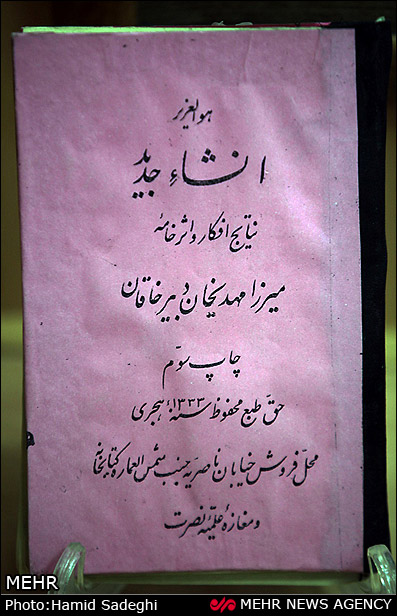 هوالعزیز
انشاء جدید
نتایج افکار و اثر خامهٔ
میرزا مهدیخان دبیر خاقان
چاپ سوّم
حقّ طبع محفوظ سنهٔ ۱۳۳۳ هجری
محلّ فروش خیابان ناصریه جنب شمس العماره کتابخانه
و مغازهٔ علمیّهٔ نصرت
MEHR
Photo:Hamid Sadeghi
MEHR NEWS AGENCY